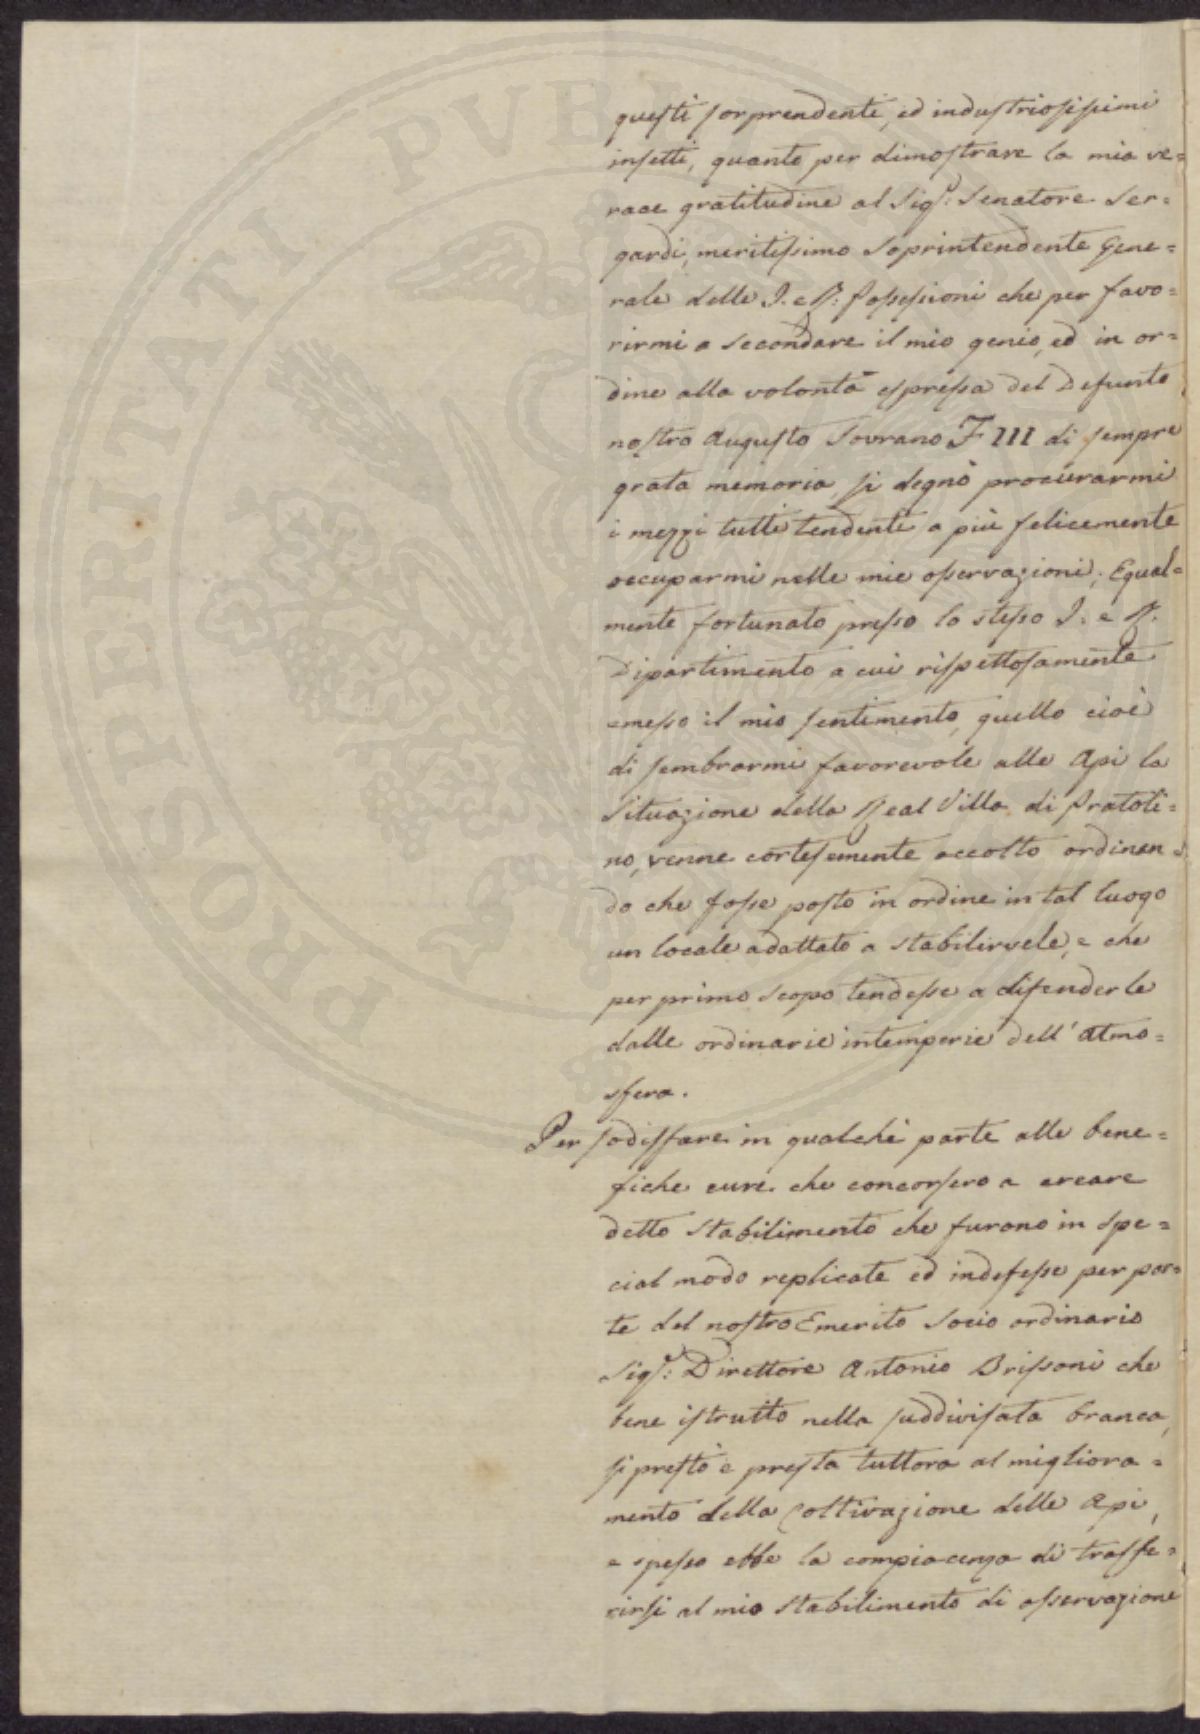 questi sorprendenti, ed industriosissimi
insetti, quanto per dimostrare la mia ve=
race gratitudine al Sigr: Senatore Ser=
gardi, meritissimo Soprintendente Gene=
rale delle I. e R. Possessioni che per favo=
rirmi a secondare il mio genio, ed in or=
dine alla volontà espressa del Defunto
nostro Augusto Sovrano F III di sempre
grata memoria, si degnò procurarmi
i mezzi tutti tendenti a più felicemente
occuparmi nelle mie osservazioni; Equal=
mente fortunato presso lo stesso I. e R.
Dipartimento a cui rispettosamente
emesso il mio sentimento, quello cioè
di sembrarmi favorevole alle Api la
Situazione della Real Villa di Pratoli=
no, venne cortesemente accolto ordinan=
do che fosse posto in ordine in tal luogo
un locale adattato a stabilirvele, e che
per primo scopo tendesse a difenderle
dalle ordinarie intemperie dell' Atmo=
sfera.
Per sodisfare in qualche parte alle bene=
fiche cure che concorsero a creare
detto Stabilimento che furono in spe=
cial modo replicate ed indefesse per par=
te del nostro Emerito Socio ordinario
Sigr: Direttore Antonio Brissoni che
bene istrutto nella suddivisata branca,
si prestò e presta tuttora al migliora=
mento della Coltivazione delle Api,
e spesso ebbe la compiacenza di trasfe=
rirsi al mio Stabilimento di osservazione
PROSPERITATI PVBL